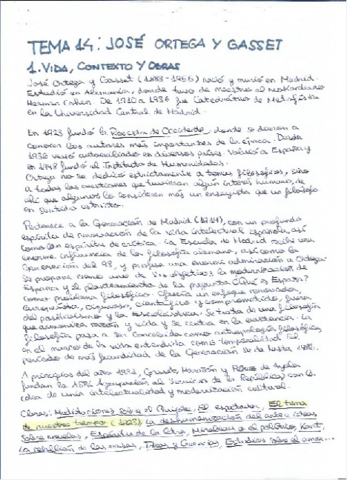 TEMA 14: JOSÉ ORTEGA Y GASSET
1. VIDA, CONTEXTO Y OBRAS
José Ortega y Gasset (1883-1955) nació y murió en Madrid.
Estudió en Alemania, donde tuvo de maestro al neokantiano
Herman Cohen. De 1910 a 1936 fue Catedrático de Metafísica
en la Universidad Central de Madrid.
En 1923 fundó la Revista de Occidente, donde se dieron a
conocer los autores más importantes de la época. Desde
1936 vivió autoexiliado en diversos países. Volvió a España y
en 1948 fundó el Instituto de Humanidades.
Ortega no se dedicó estrictamente a temas filosóficos, sino
a todas las cuestiones que tuvieran algún interés humano, de
ahí que algunos lo consideren más un ensayista que un filósofo
en sentido estricto.
Pertenece a la Generación de Madrid, con un profundo
espíritu de renovación de la vida intelectual española, así
como un espíritu de crítica. La Escuela de Madrid recibe una
enorme influencia de la filosofía alemana, así como la
Generación del 98, y profesa una enorme admiración a Ortega.
Se propone como uno de sus objetivos la modernización de
España y el planteamiento de la pregunta ¿Qué es España?
como problema filosófico. Ofrecía un enfoque renovador,
científico y comprometido, fuera
del positivismo y la Se trata de una filosofía
que razón y vida y se centra en la
filosofía pasa a ser concebida como antropología filosófica,
en el marco de la vida entendida como temporalidad. El
periodo de más fecundidad de la Generación es de hasta
A principios del año 1931, Ortega, Marañón y Pérez de Ayala
fundan la ASR (Agrupación al Servicio de la República) con la
idea de unir intelectualidad y modernización cultural.
Obras: Meditaciones sobre el Quijote, El espectador, El tema
de nuestro tiempo (1923), La deshumanización del arte e ideas
sobre novelas, Espíritu de la letra, Mirabeau o el político, Kant,
La rebelión de las masas, Estudios sobre el amor...